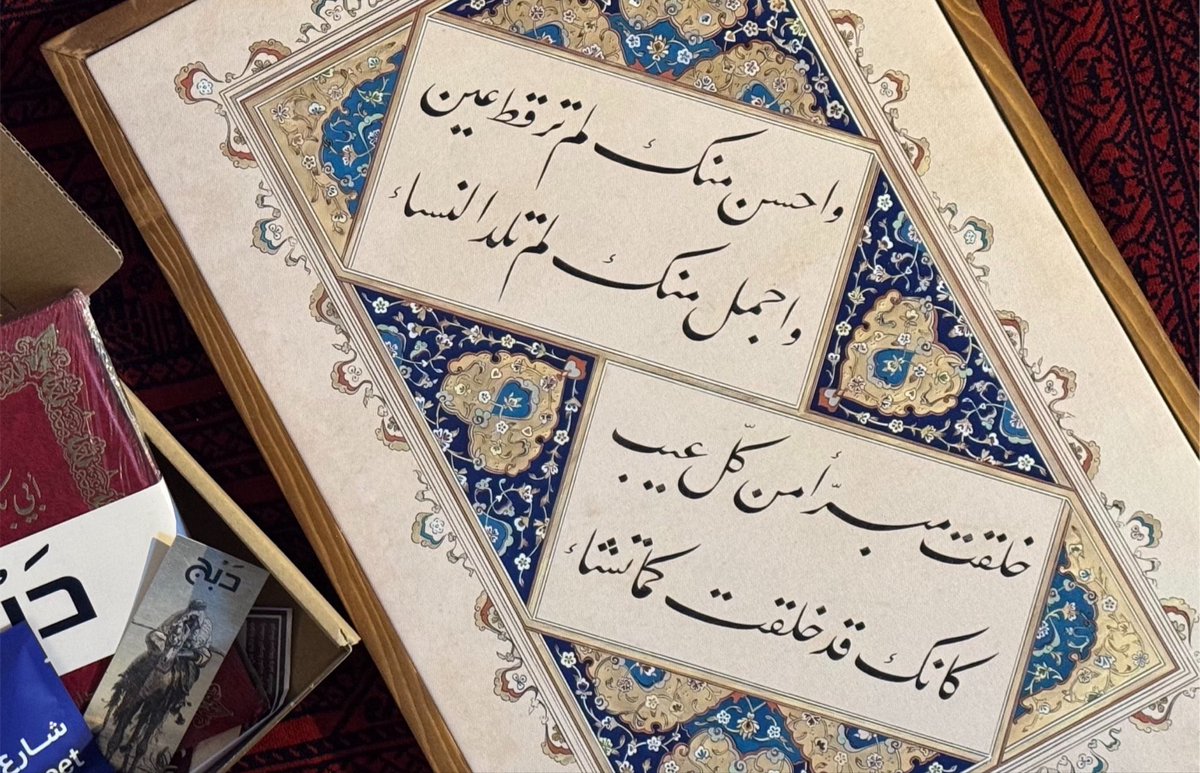 واحسن منك لم تر قط عين
واجمل منك لم تلد النساء
خلقت مبرّأ من كلّ عيب
كانك قد خلقت كما تشاء
أبي بك
دَبْ
دَبْج
شارع
eet